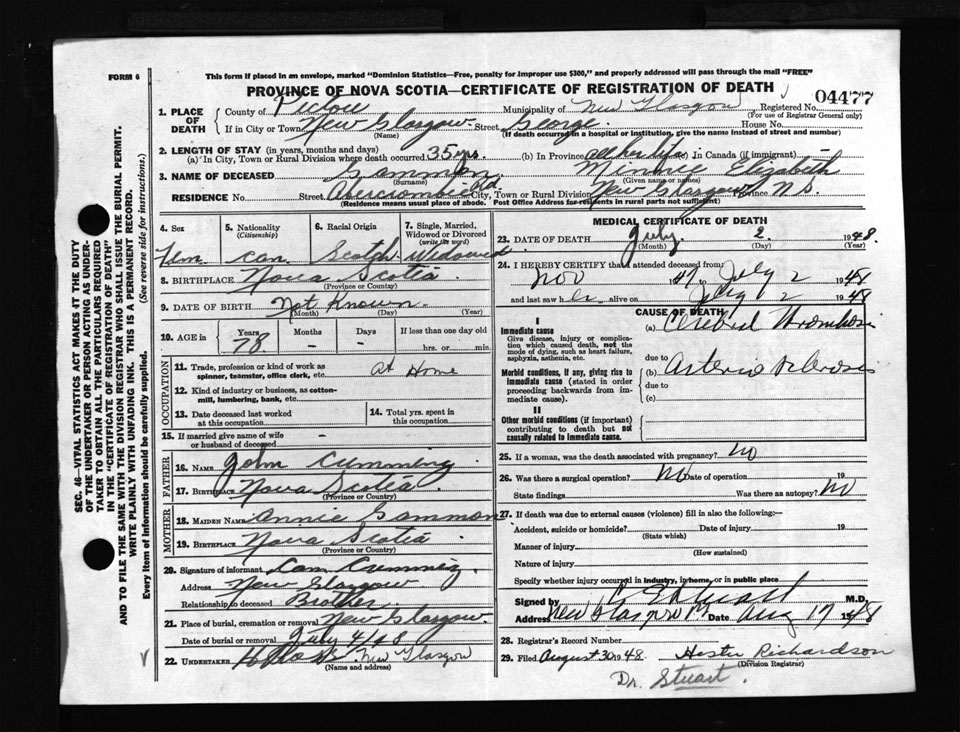 FORM 6
This form if placed in an envelope, marked "Dominion Statistics—Free, penalty for improper use $300," and properly addressed will pass through the mail "FREE"
PROVINCE OF NOVA SCOTIA—CERTIFICATE OF REGISTRATION OF DEATH
04477
1. PLACE OF DEATH
County of Pictou Municipality of New Glasgow Registered No.
(For use of Registrar General only)
If in City or Town New Glasgow Street George House No.
(Name) (If death occurred in a hospital or institution, give the name instead of street and number)
2. LENGTH OF STAY (in years, months and days)
(a) In City, Town or Rural Division where death occurred 35 yrs. (b) In Province all her life (c) In Canada (if immigrant)
3. NAME OF DECEASED Gammon Minnie Elizabeth
(Surname) (Given name or names)
RESIDENCE No. Street Abercrombie Rd. City, Town or Rural Division New Glasgow Province N.S.
(Residence means usual place of abode. Post Office Address for residents in rural parts not sufficient)
4. Sex
Fem.
5. Nationality (Citizenship)
Can.
6. Racial Origin
Scotch
7. Single, Married, Widowed or Divorced (write the word)
Widowed
8. BIRTHPLACE Nova Scotia
(Province or Country)
9. DATE OF BIRTH Not Known
(Month) (Day) (Year)
10. AGE in Years Months Days If less than one day old
78 - - hrs. or min.
OCCUPATION
11. Trade, profession or kind of work as spinner, teamster, office clerk, etc. At Home
12. Kind of industry or business, as cotton-mill, lumbering, bank, etc.
13. Date deceased last worked at this occupation
14. Total yrs. spent in this occupation
15. If married give name of wife or husband of deceased -
FATHER
16. NAME John Cumming
17. BIRTHPLACE Nova Scotia
(Province or Country)
MOTHER
18. MAIDEN NAME Annie Gammon
19. BIRTHPLACE Nova Scotia
(Province or Country)
20. Signature of informant Cumming
Address New Glasgow
Relationship to deceased Brother
21. Place of burial, cremation or removal New Glasgow.
Date of burial or removal July 4/48
22. UNDERTAKER New Glasgow
(Name and address)
MEDICAL CERTIFICATE OF DEATH
23. DATE OF DEATH July 2 1948.
(Month) (Day) (Year)
24. I HEREBY CERTIFY that I attended deceased from:
Nov 1947 July 2 1948
and last saw her alive on July 2 1948
CAUSE OF DEATH
I
Immediate cause
Give disease, injury or complication which caused death, not the mode of dying, such as heart failure, asphyxia, asthenia, etc.
(a) Cerebral Thrombosis
due to
Morbid conditions, if any, giving rise to immediate cause (stated in order proceeding backwards from immediate cause).
(b) Arterio Sclerosis
due to
(c)
II
Other morbid conditions (if important) contributing to death but not causally related to immediate cause.
25. If a woman, was the death associated with pregnancy? No
26. Was there a surgical operation? No Date of operation 19
State findings Was there an autopsy? No
27. If death was due to external causes (violence) fill in also the following:—
Accident, suicide or homicide? Date of injury 19
(State which)
Manner of injury
(How sustained)
Nature of injury
Specify whether injury occurred in industry, in home, or in public place
Signed by Stuart M.D.
Address New Glasgow Date Aug 17 1948
28. Registrar's Record Number
29. Filed August 30 1948. Hester Richardson
(Division Registrar)
Dr. Stuart.
SEC. 46—VITAL STATISTICS ACT MAKES IT THE DUTY
OF THE UNDERTAKER OR PERSON ACTING AS UNDER-
TAKER TO OBTAIN ALL THE PARTICULARS REQUIRED
IN THE "CERTIFICATE OF REGISTRATION OF DEATH"
AND TO FILE THE SAME WITH THE DIVISION REGISTRAR WHO SHALL ISSUE THE BURIAL PERMIT.
WRITE PLAINLY WITH UNFADING INK. THIS IS A PERMANENT RECORD.
Every item of information should be carefully supplied. (See reverse side for instructions.)